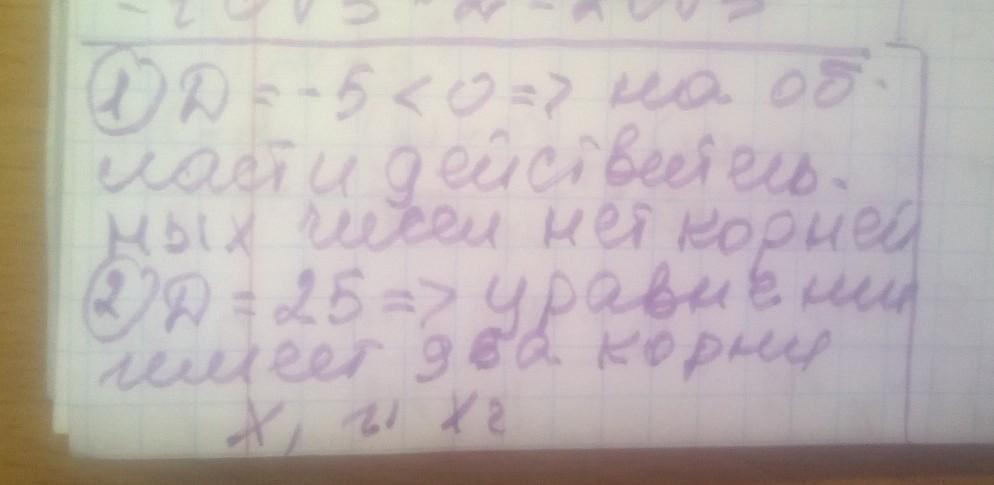 ① D = -5 < 0 => на об-
ласти действитель-
ных чисел нет корней
② D = 25 => уравнени
имеет два корня
x₁ и x₂